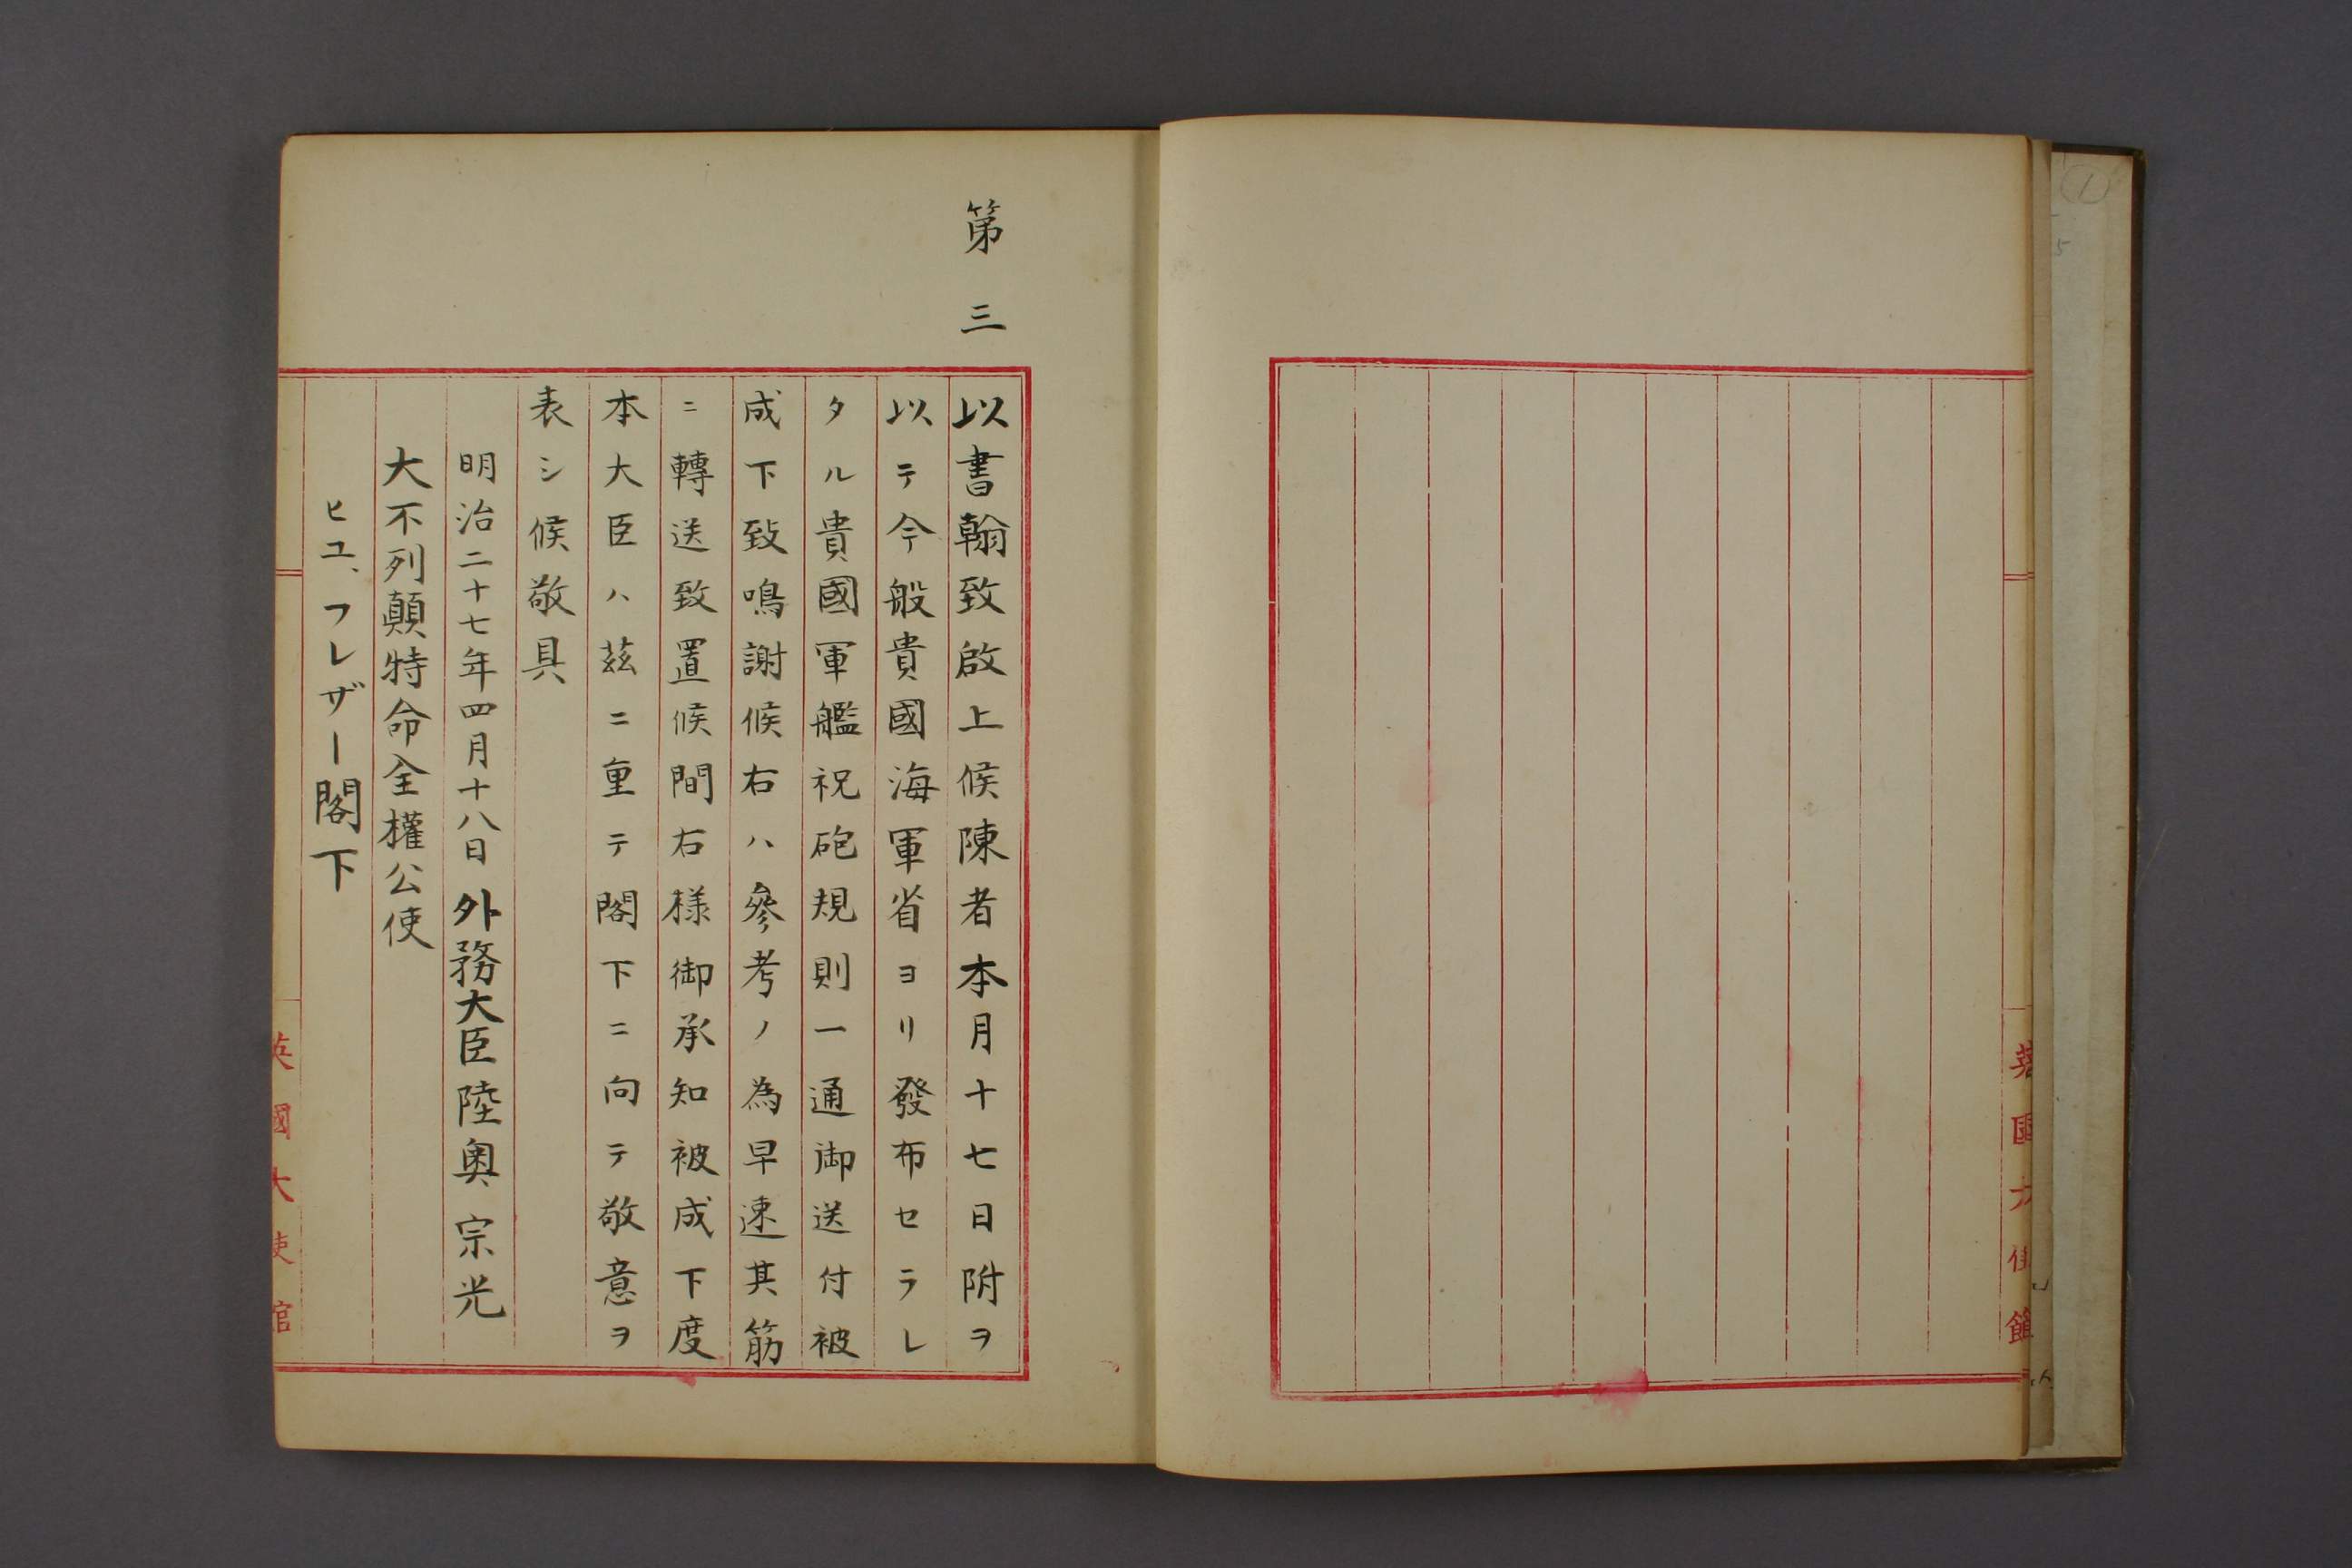 第三
以書翰致啟上候陳者本月十七日附ヲ
以テ今般貴國海軍省ヨリ發布セラレ
タル貴國軍艦祝砲規則一通御送付被
成下致鳴謝候右ハ參考ノ為早速其筋
ニ轉送致置候間右様御承知被成下度
本大臣ハ茲ニ重テ閣下ニ向テ敬意ヲ
表シ候敬具
明治二十七年四月十八日 外務大臣陸奥宗光
大不列顛特命全權公使
ヒユ、フレザー閣下
英國大使館
英國大使館
1
5